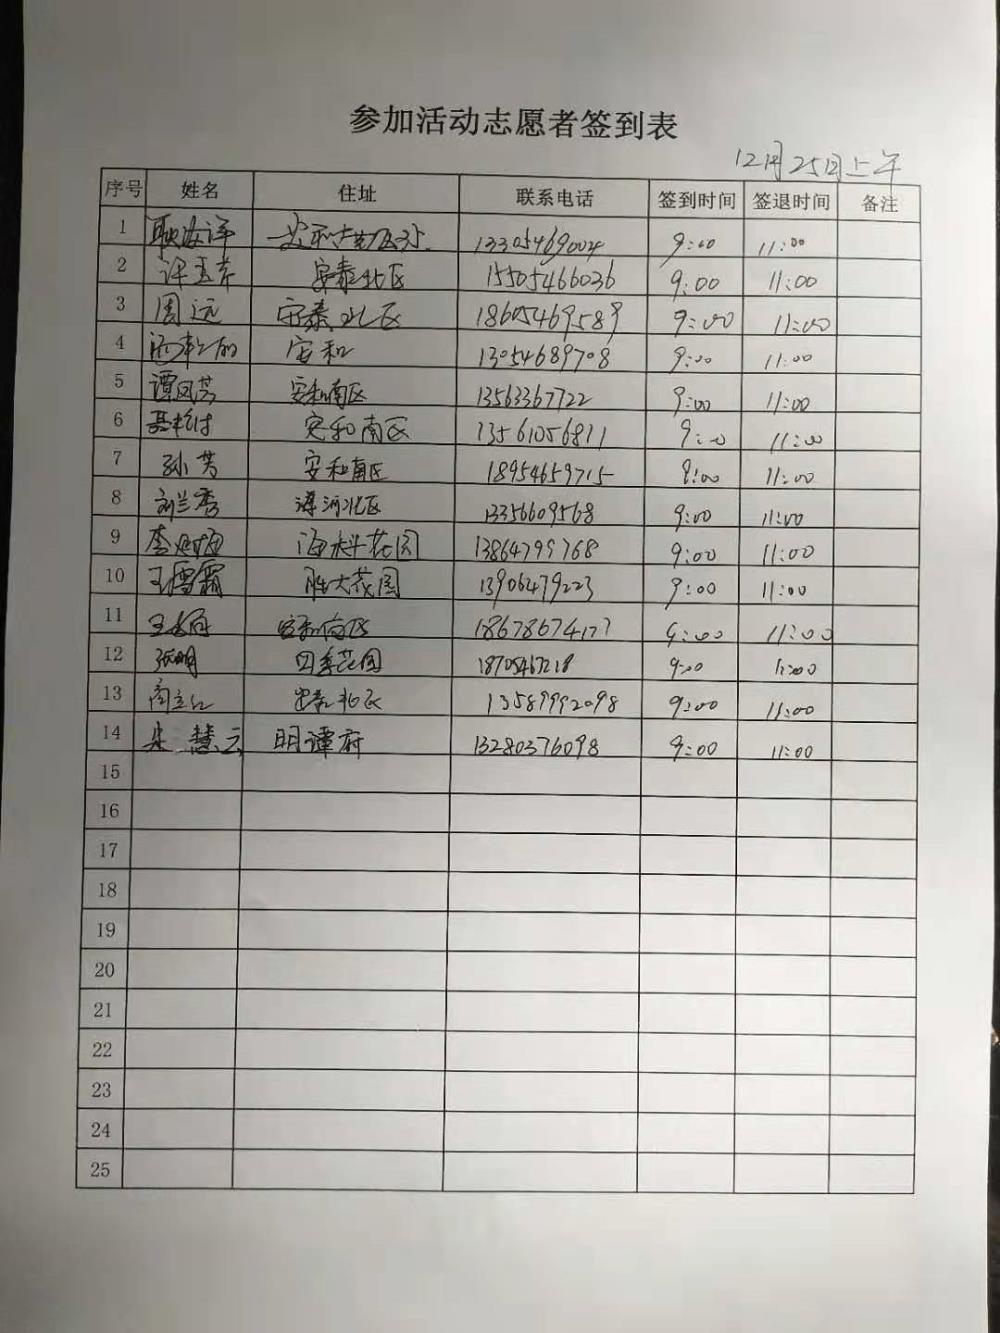 参加活动志愿者签到表
12月25日上午
序号 姓名 住址 联系电话 签到时间 签退时间 备注
1 耿海洋 13305469004 9:00 11:00
2 许玉芹 安泰北区 15505466036 9:00 11:00
3 周远 安泰北区 18605469589 9:00 11:00
4 安和 13054689708 9:00 11:00
5 谭凤芳 安和南区 13563367722 9:00 11:00
6 安和南区 13561056811 9:00 11:00
7 孙芳 安和南区 18954659715 9:00 11:00
8 刘兰秀 北区 13356609568 9:00 11:00
9 李 花园 13864799768 9:00 11:00
10 王雪霜 胜大花园 13906479223 9:00 11:00
11 王 18678674177 9:00 11:00
12 张明 四季花园 18705467218 9:00 11:00
13 北区 13589992098 9:00 11:00
14 朱慧云 明潭府 13280376098 9:00 11:00
15
16
17
18
19
20
21
22
23
24
25